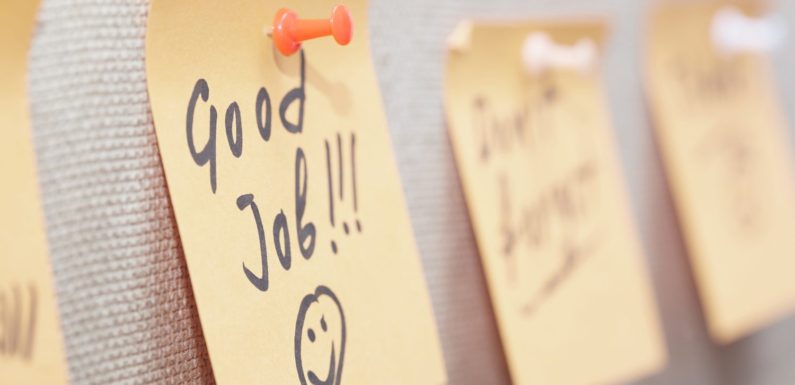 Good
Job!!!
Don't
forget